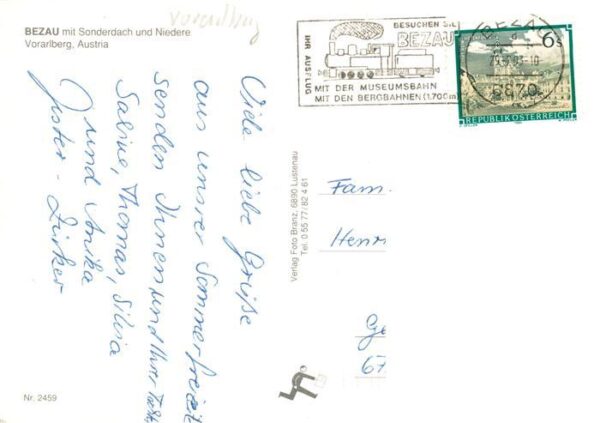 BEZAU mit Sonderdach und Niedere
Vorarlberg, Austria
Vorarlberg
Viele liebe Grüße
aus unsrer Sommerfreizeit
senden Ihnen und Ihrer
Sabine, Thomas, Silvia
und Anika
Nr. 2459
Verlag Foto Branz, 6890 Lustenau
Tel. 0 55 77 / 82 4 61
IHR AUSFLUG
BESUCHEN SIE
BEZAU
MIT DER MUSEUMSBAHN
MIT DEN BERGBAHNEN (1.700m)
BEZAU
8870
6 S
REPUBLIK ÖSTERREICH
Fam.
Henr
Ge
67